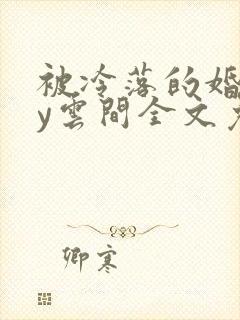 被冷落的婚
y雲間全文
卿寒